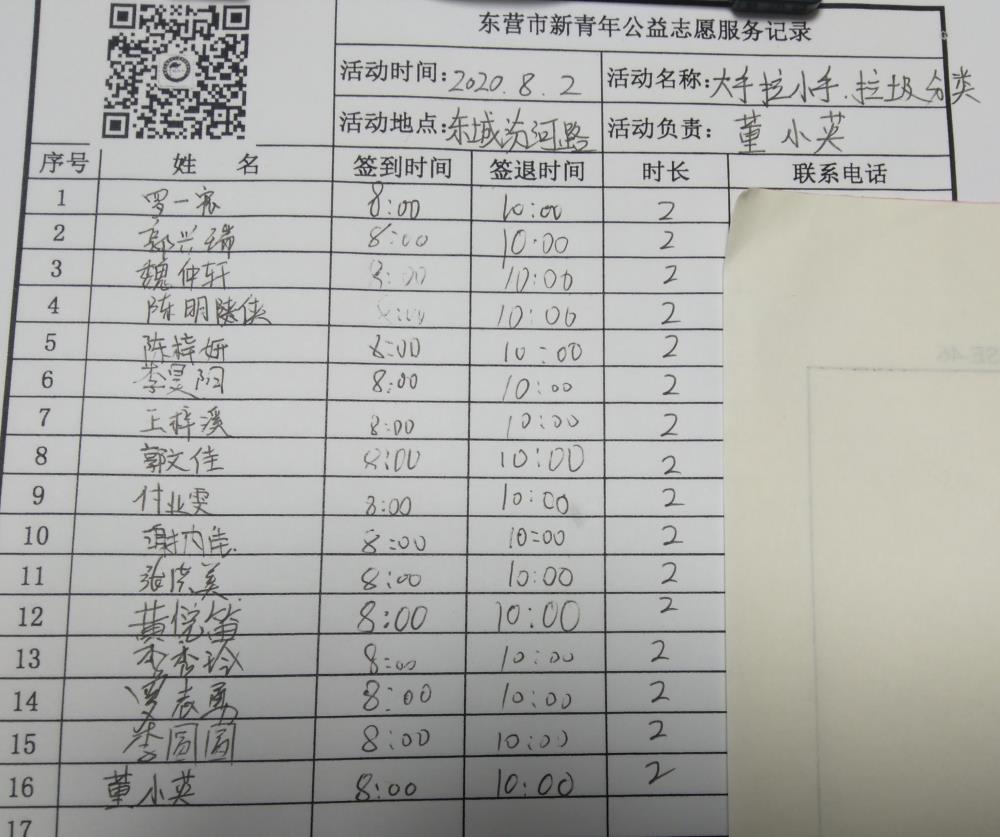 东营市新青年公益志愿服务记录
活动时间: 2020.8.2 活动名称: 大手拉小手.垃圾分类
活动地点: 东城汾河路 活动负责: 董小英
序号 姓名 签到时间 签退时间 时长 联系电话
1 罗一宸 8:00 10:00 2
2 郭兴瑞 8:00 10:00 2
3 魏仲轩 8:00 10:00 2
4 陈明 8:00 10:00 2
5 陈梓妍 8:00 10:00 2
6 李昊阳 8:00 10:00 2
7 王梓溪 8:00 10:00 2
8 郭文佳 8:00 10:00 2
9 付业雯 8:00 10:00 2
10 8:00 10:00 2
11 张 英 8:00 10:00 2
12 黄悦笛 8:00 10:00 2
13 李秀玲 8:00 10:00 2
14 罗志勇 8:00 10:00 2
15 李圆圆 8:00 10:00 2
16 董小英 8:00 10:00 2
17